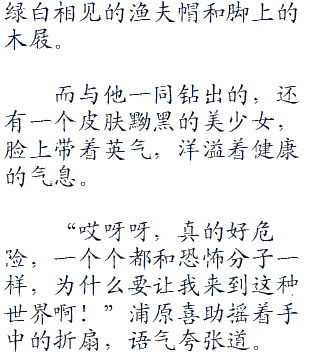 绿白相见的渔夫帽和脚上的
木屐。
而与他一同钻出的，还
有一个皮肤黝黑的美少女，
脸上带着英气，洋溢着健康
的气息。
“哎呀呀，真的好危
险，一个个都和恐怖分子一
样，为什么要让我来到这种
世界啊！”浦原喜助摇着手
中的折扇，语气夸张道。